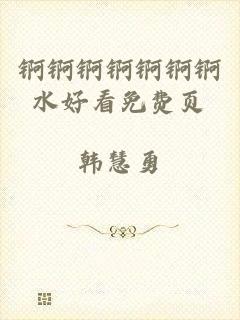 锕锕锕锕锕锕锕
水好看免费页
韩慧勇